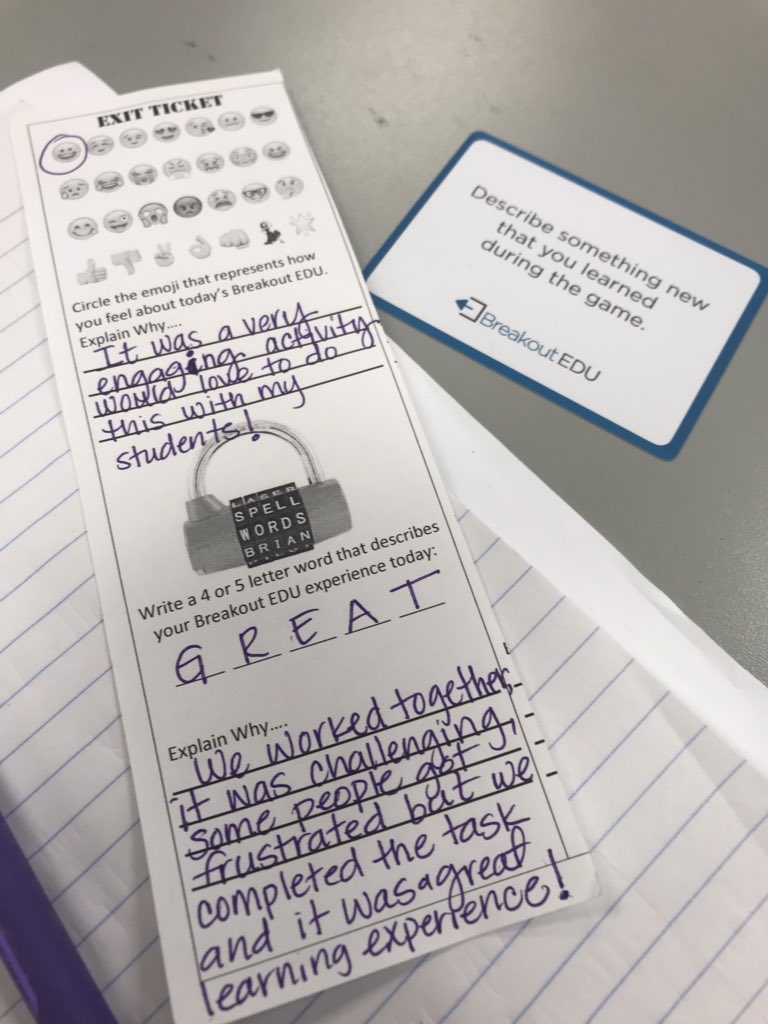 EXIT TICKET
Circle the emoji that represents how
you feel about today's Breakout EDU.
Explain Why....
It was a very
engaging activity
would love to do
this with my
students!
LASER
SPELL
WORDS
BRIAN
Write a 4 or 5 letter word that describes
your Breakout EDU experience today:
G R E A T
Explain Why....
We worked together,
it was challenging,
some people got
frustrated but we
completed the task
and it was a great
learning experience!
Describe something new
that you learned
during the game.
Breakout EDU